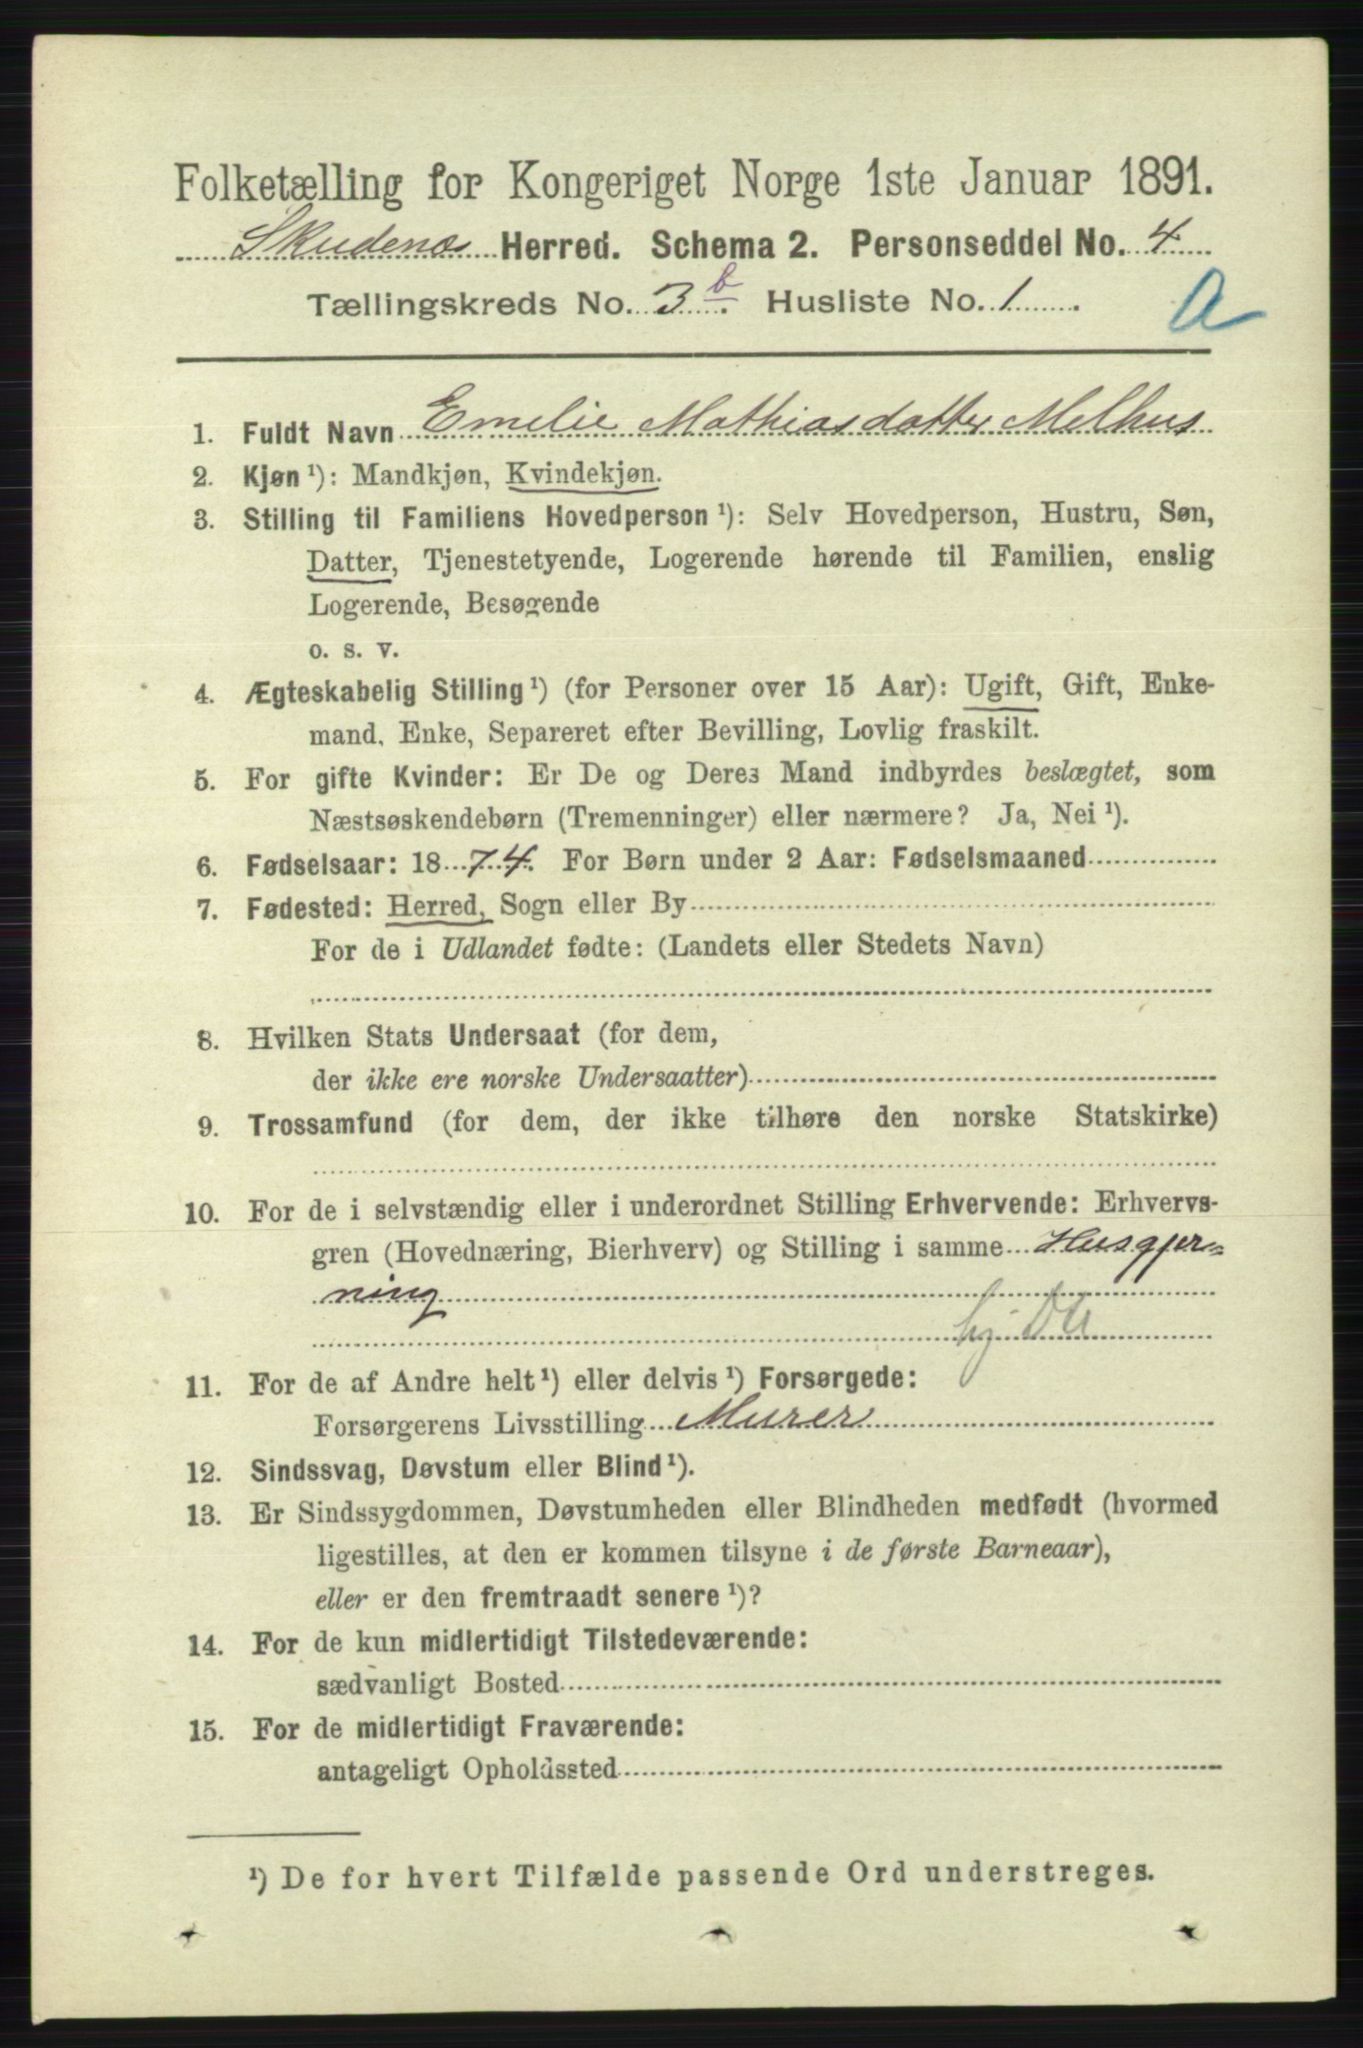 Folketælling for Kongeriget Norge 1ste Januar 1891.
Skudenes Herred. Schema 2. Personseddel No. 4
Tællingskreds No. 3 b. Husliste No. 1.
a
1. Fuldt Navn Emelie Mathiasdatter Melhus
2. Kjøn ¹): Mandkjøn, Kvindekjøn.
3. Stilling til Familiens Hovedperson ¹): Selv Hovedperson, Hustru, Søn,
Datter, Tjenestetyende, Logerende hørende til Familien, enslig
Logerende, Besøgende
o. s. v.
4. Ægteskabelig Stilling ¹) (for Personer over 15 Aar): Ugift, Gift, Enke-
mand, Enke, Separeret efter Bevilling, Lovlig fraskilt.
5. For gifte Kvinder: Er De og Deres Mand indbyrdes beslægtet, som
Næstsøskendebørn (Tremenninger) eller nærmere? Ja, Nei ¹).
6. Fødselsaar: 1874. For Børn under 2 Aar: Fødselsmaaned
7. Fødested: Herred, Sogn eller By
For de i Udlandet fødte: (Landets eller Stedets Navn)
8. Hvilken Stats Undersaat (for dem,
der ikke ere norske Undersaatter)
9. Trossamfund (for dem, der ikke tilhøre den norske Statskirke)
10. For de i selvstændig eller i underordnet Stilling Erhvervende: Erhvervs-
gren (Hovednæring, Bierhverv) og Stilling i samme Husgjer=
ning
11. For de af Andre helt ¹) eller delvis ¹) Forsørgede:
Forsørgerens Livsstilling Murer
12. Sindssvag, Døvstum eller Blind ¹).
13. Er Sindssygdommen, Døvstumheden eller Blindheden medfødt (hvormed
ligestilles, at den er kommen tilsyne i de første Barneaar),
eller er den fremtraadt senere ¹)?
14. For de kun midlertidigt Tilstedeværende:
sædvanligt Bosted
15. For de midlertidigt Fraværende:
antageligt Opholdssted
¹) De for hvert Tilfælde passende Ord understreges.